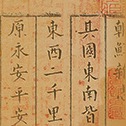 朝鮮
其國東南皆
東西二千里
原永安平安